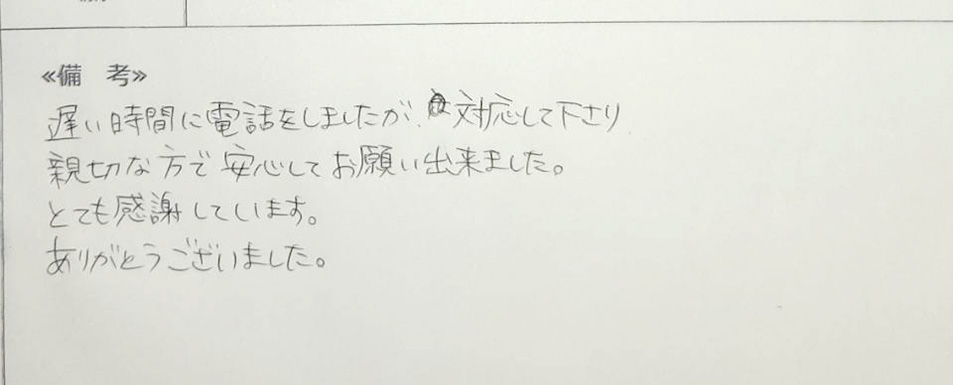 ≪備　考≫
遅い時間に電話をしましたが、対応して下さり
親切な方で安心してお願い出来ました。
とても感謝しています。
ありがとうございました。